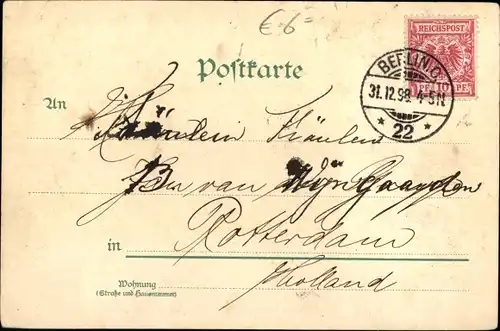 € 6=
REICHSPOST
10 PF
BERLIN C
31.12.98. 4-5N
* 22 *
Postkarte
An
Fräulein
van Wijngaarden
in Rotterdam
Holland
Wohnung
(Straße und Hausnummer)